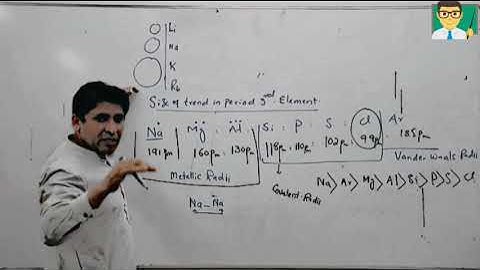 Li
Na
K
Rb
Size of trend in period 3rd Element
Na Mg Al Si P S Cl Ar
191pm 160pm 130pm 118pm 110pm 102pm 99pm 185pm
Metallic Radii
Covalent Radii
Vander Waals Radii
Na - Na
Na > Ar > Mg > Al > Si > P > S > Cl